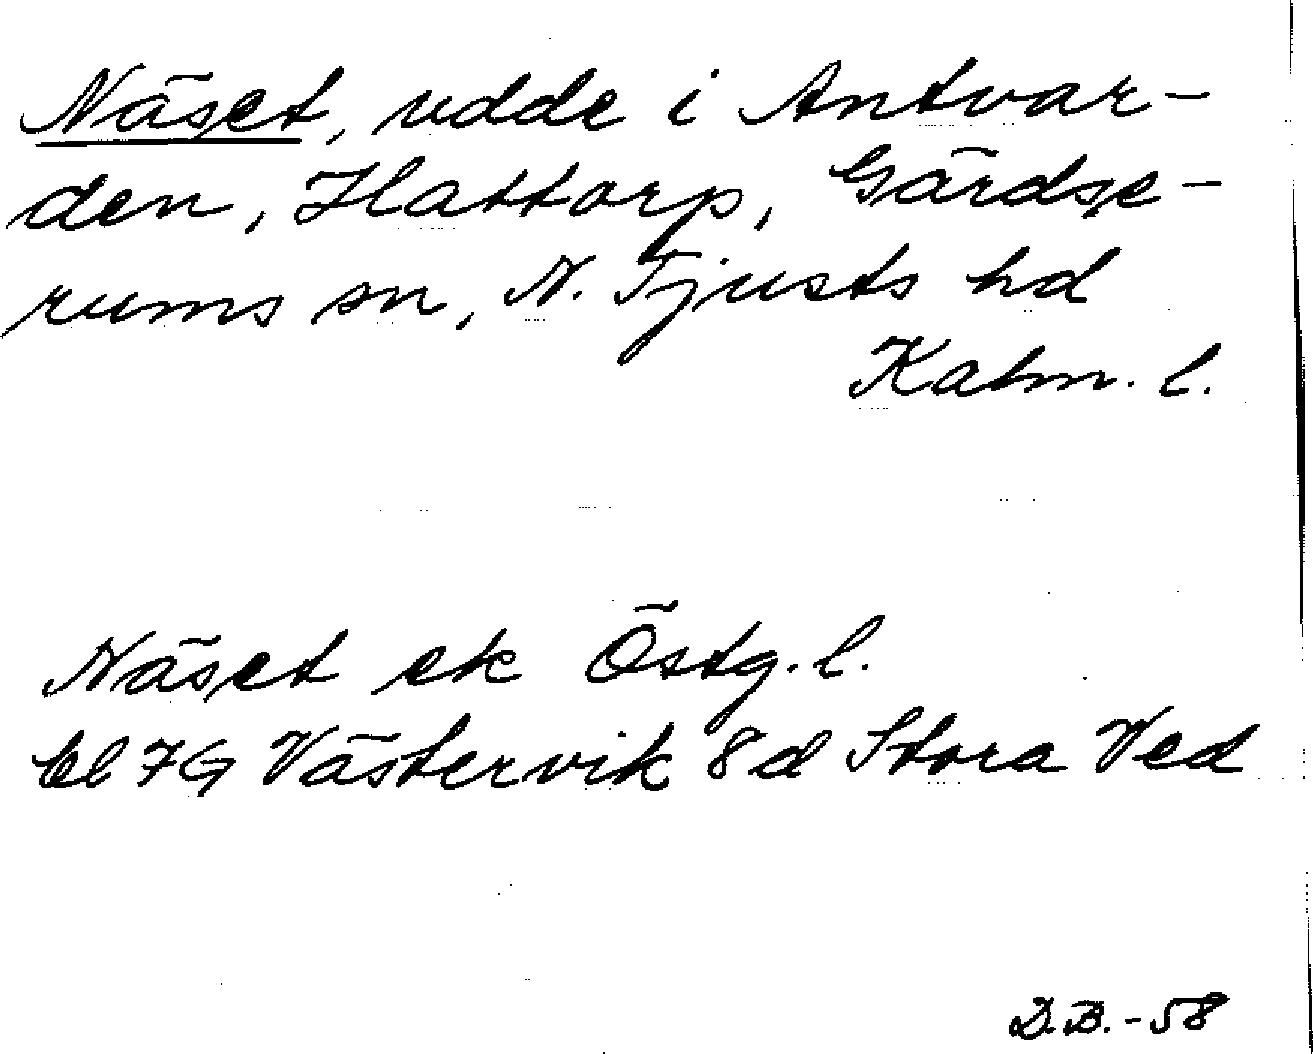 Näset, udde i Antvar-
den, Hattorp, Gärdse-
rums sn, N. Tjusts hd
Kalm. l.
Näset ek Östg. l.
bl 7G Västervik 8d Stora Ved
D.B. - 58